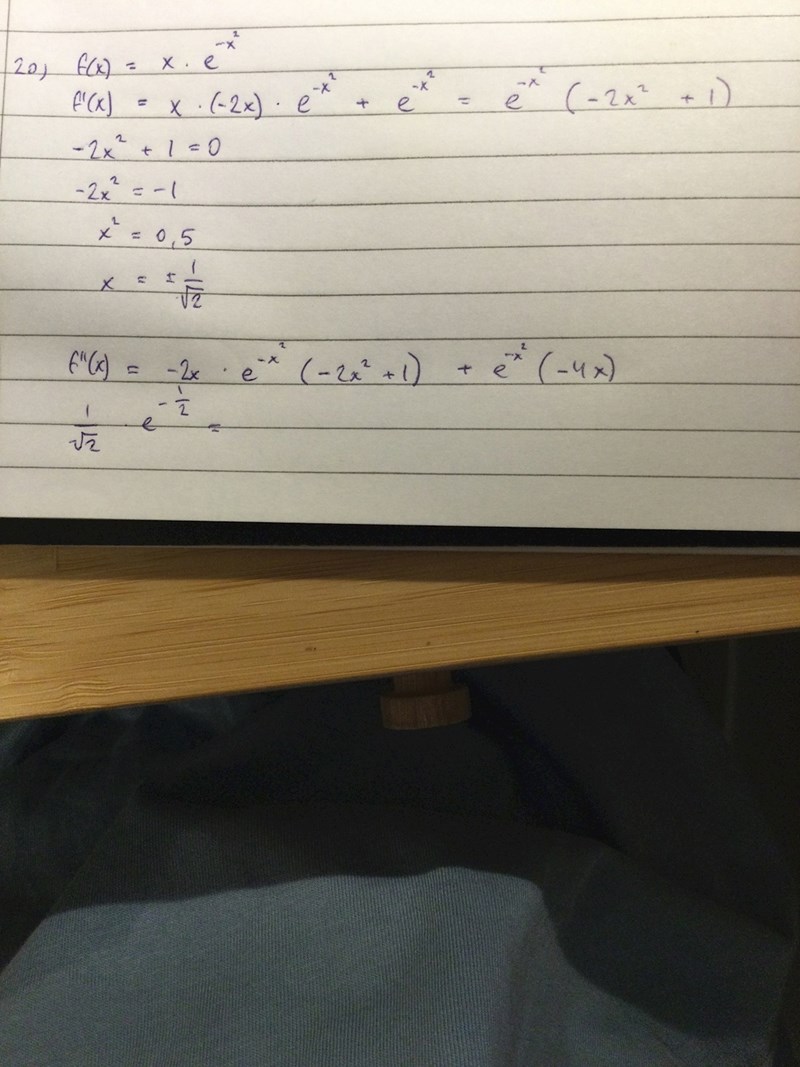 20) f(x) = x · e^{-x²}
f'(x) = x · (-2x) · e^{-x²} + e^{-x²} = e^{-x²} (-2x² + 1)
-2x² + 1 = 0
-2x² = -1
x² = 0,5
x = ± 1/√2
f''(x) = -2x · e^{-x²} (-2x² + 1) + e^{-x²} (-4x)
1/√2 · e^{-1/2} =